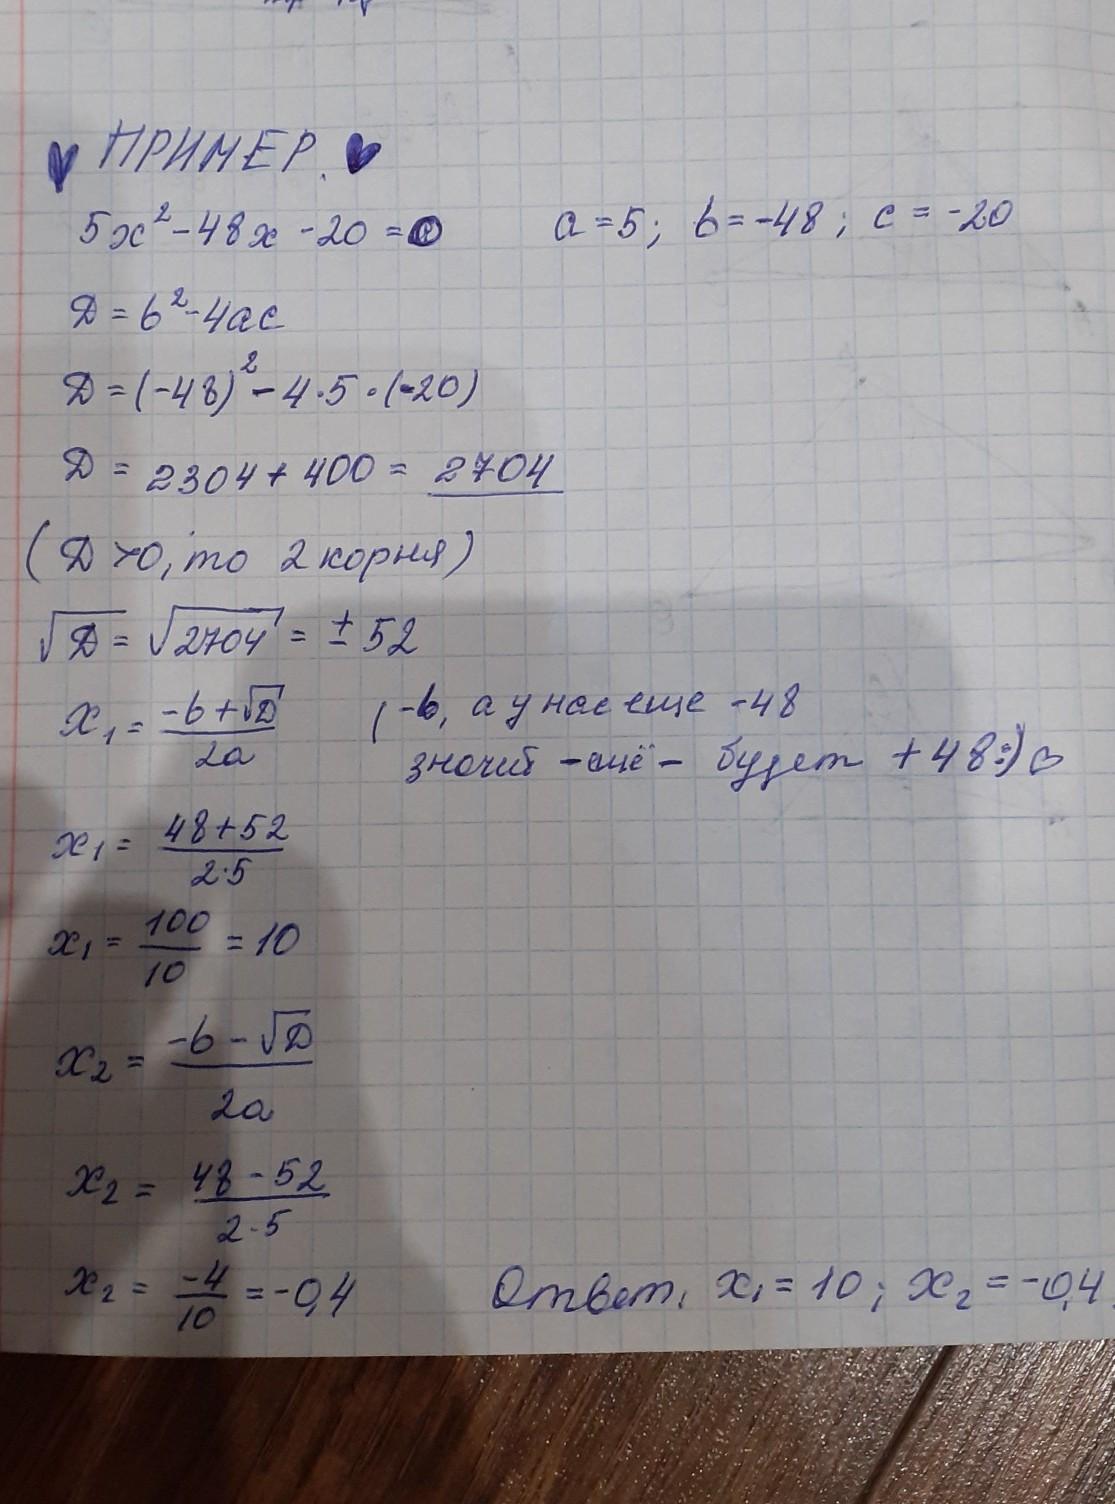 ПРИМЕР.
5x² - 48x - 20 = 0 a = 5; b = -48; c = -20
Д = b² - 4ac
Д = (-48)² - 4·5·(-20)
Д = 2304 + 400 = 2704
(Д > 0, то 2 корня)
√Д = √2704 = ± 52
x₁ = (-b + √Д)/2a (-b, а у нас еще -48
значит -ещё- будет +48:) ♡
x₁ = (48 + 52)/(2·5)
x₁ = 100/10 = 10
x₂ = (-b - √Д)/2a
x₂ = (48 - 52)/(2·5)
x₂ = -4/10 = -0,4 Ответ. x₁ = 10; x₂ = -0,4.